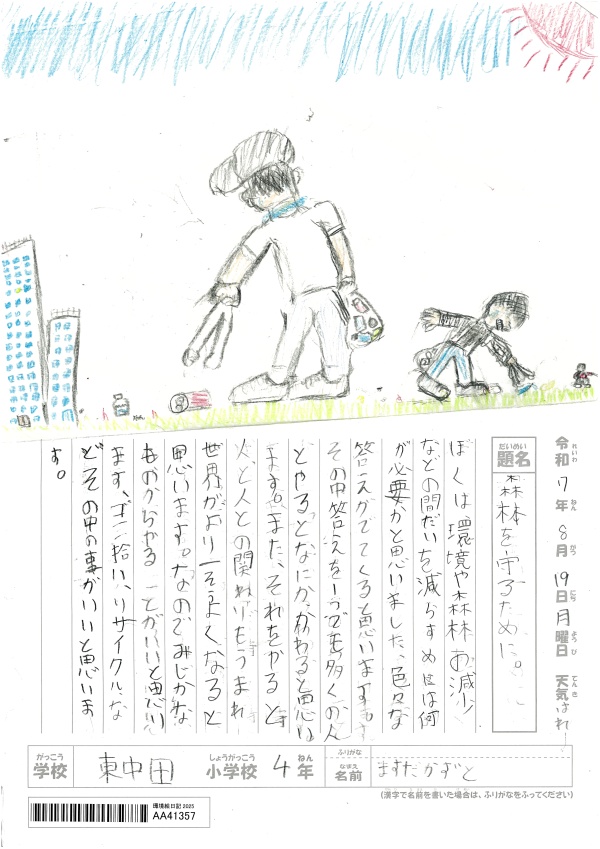 令和7年8月19日月曜日 天気はれ
題名 森林を守るために。
ぼくは環境や森林お減少
などの問だいを減らすめには何
が必要かと思いました、色々な
答えがでてくると思います。
その中答えを一つでも多くの人
とやるとなにか、かわると思い
ます。また、それをやると
人と人との関わりもうまれ
世界がより一そうよくなると
思います。なのでみじかな
ものからやることがいいと思い
ます、ゴミ拾い、リサイクルな
どその中の事がいいと思いま
す。
学校 東中田 小学校 4年 名前 ますだかずと
(漢字で名前を書いた場合は、ふりがなをふってください)
環境絵日記 2025
AA41357